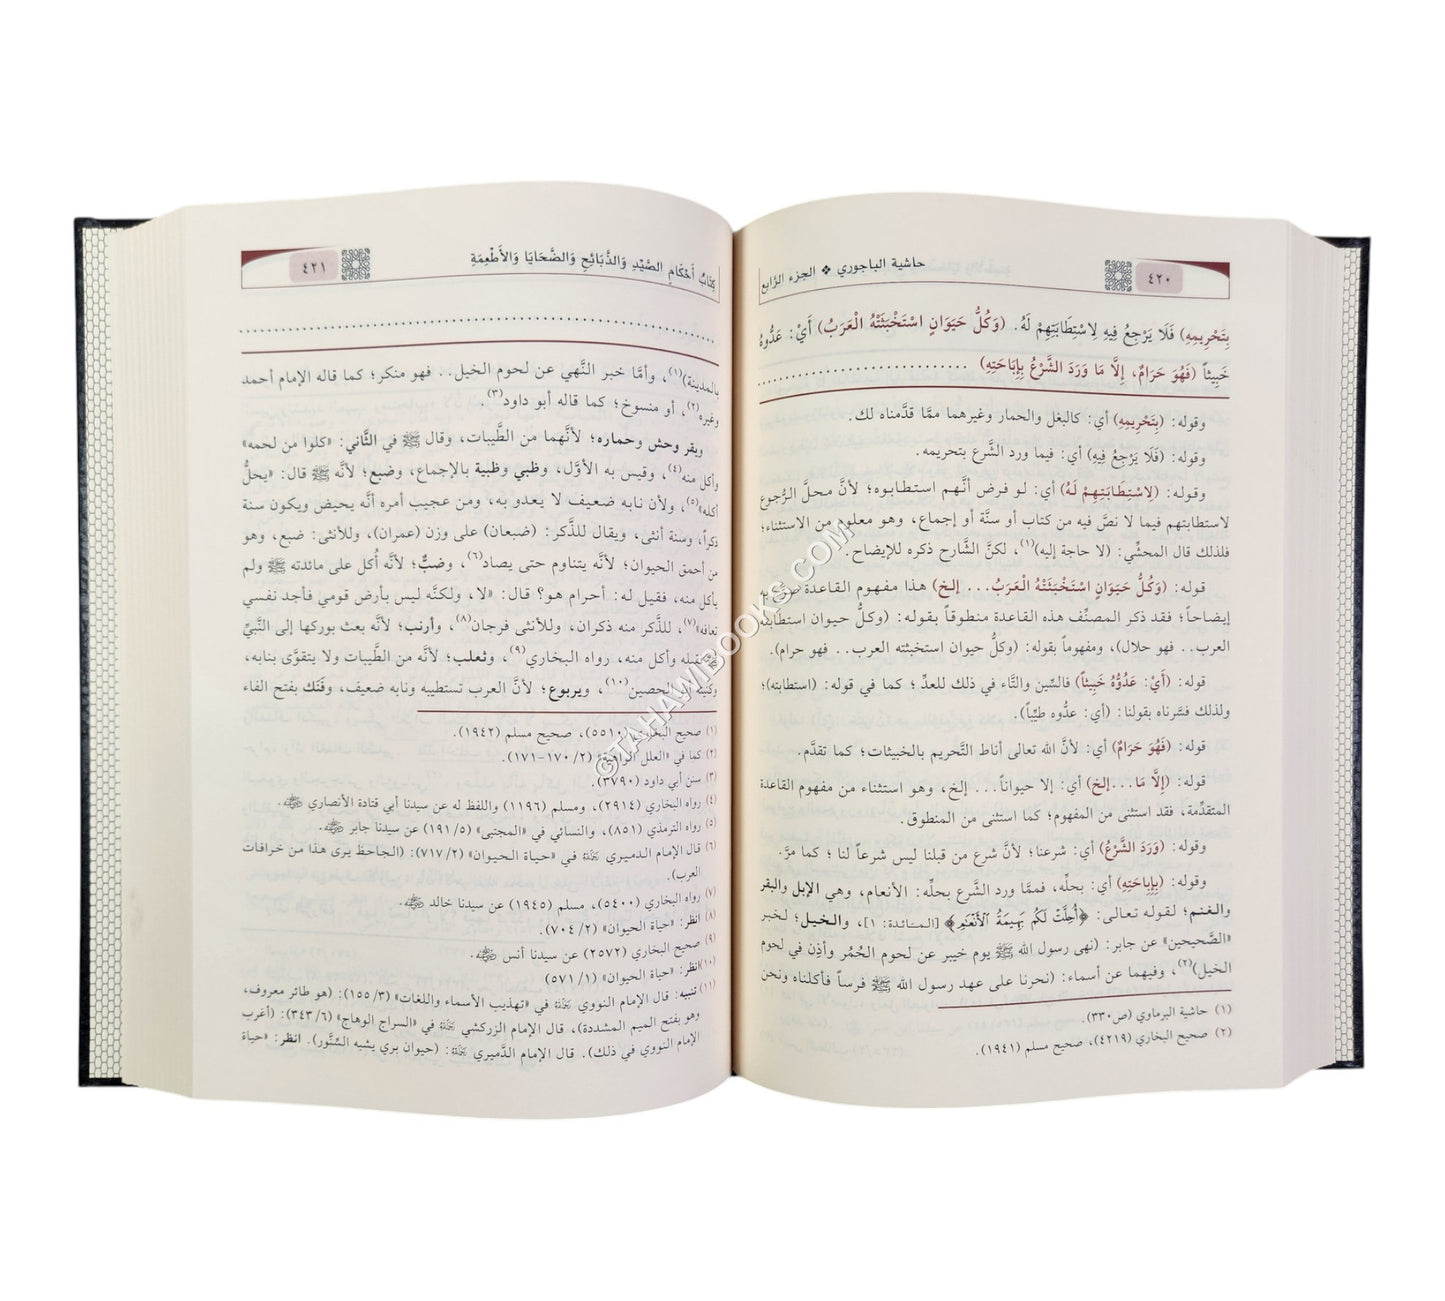 ٤٢٠
حاشية الباجوري ❖ الجزء الرَّابع
بِتَحْرِيمِهِ) فَلَا يَرْجِعُ فِيهِ لِاسْتِطَابَتِهِمْ لَهُ. (وَكُلُّ حَيَوَانٍ اسْتَخْبَثَتْهُ الْعَرَبُ) أَيْ: عَدُّوهُ
خَبِيثاً (فَهُوَ حَرَامٌ، إِلَّا مَا وَرَدَ الشَّرْعُ بِإِبَاحَتِهِ) ..............................
وقوله: (بِتَحْرِيمِهِ) أي: كالبغل والحمار وغيرهما ممَّا قدَّمناه لك.
وقوله: (فَلَا يَرْجِعُ فِيهِ) أي: فيما ورد الشَّرع بتحريمه.
وقوله: (لِاسْتِطَابَتِهِمْ لَهُ) أي: لو فرض أنَّهم استطابوه؛ لأنَّ محلَّ الرُّجوع
لاستطابتهم فيما لا نصَّ فيه من كتاب أو سنَّة أو إجماع، وهو معلوم من الاستثناء؛
فلذلك قال المحشِّي: (لا حاجة إليه)(١)، لكنَّ الشَّارح ذكره للإيضاح.
قوله: (وَكُلُّ حَيَوَانٍ اسْتَخْبَثَتْهُ الْعَرَبُ... إلخ) هذا مفهوم القاعدة به
إيضاحاً؛ فقد ذكر المصنِّف هذه القاعدة منطوقاً بقوله: (وكلُّ حيوان استطابته
العرب.. فهو حلال)، ومفهوماً بقوله: (وكلُّ حيوان استخبثته العرب.. فهو حرام).
قوله: (أَيْ: عَدُّوهُ خَبِيثاً) فالسِّين والتَّاء في ذلك للعدِّ؛ كما في قوله: (استطابته)؛
ولذلك فسَّرناه بقولنا: (أي: عدُّوه طيِّباً).
قوله: (فَهُوَ حَرَامٌ) أي: لأنَّ الله تعالى أناط التَّحريم بالخبيثات؛ كما تقدَّم.
قوله: (إِلَّا مَا...إلخ) أي: إلا حيواناً... إلخ، وهو استثناء من مفهوم القاعدة
المتقدِّمة، فقد استثنى من المفهوم؛ كما استثنى من المنطوق.
وقوله: (وَرَدَ الشَّرْعُ) أي: شرعنا؛ لأنَّ شرع من قبلنا ليس شرعاً لنا؛ كما مرَّ.
وقوله: (بِإِبَاحَتِهِ) أي: بحلِّه، فممَّا ورد الشَّرع بحلِّه: الأنعام، وهي الإبل والبقر
والغنم؛ لقوله تعالى: ﴿أُحِلَّتْ لَكُم بَهِيمَةُ الْأَنْعَامِ﴾ [المائدة: ١]، والخيل؛ لخبر
«الصَّحيحين» عن جابر: (نهى رسول الله ﷺ يوم خيبر عن لحوم الحُمُر وأذِن في لحوم
الخيل)(٢)، وفيهما عن أسماء: (نحرنا على عهد رسول الله ﷺ فرساً فأكلناه ونحن
(١) حاشية البرماوي (ص٣٣٠).
(٢) صحيح البخاري (٤٢١٩)، صحيح مسلم (١٩٤١).
كِتَابُ أَحْكَامِ الصَّيْدِ وَالذَّبَائِحِ وَالضَّحَايَا وَالأَطْعِمَةِ
٤٢١
..............................................................
بالمدينة)(١)، وأمَّا خبر النَّهي عن لحوم الخيل.. فهو منكر؛ كما قاله الإمام أحمد
وغيره(٢)، أو منسوخ؛ كما قاله أبو داود(٣).
وبقر وحش وحماره؛ لأنَّهما من الطَّيبات، وقال ﷺ في الثَّاني: «كلوا من لحمه»
وأكل منه(٤)، وقيس به الأوَّل، وظبي وظبية بالإجماع، وضبع؛ لأنَّه ﷺ قال: «يحلُّ
أكله»(٥)، ولأن نابه ضعيف لا يعدو به، ومن عجيب أمره أنَّه يحيض ويكون سنة
ذكراً، وسنة أنثى، ويقال للذَّكر: (ضبعان) على وزن (عمران)، وللأنثى: ضبع، وهو
من أحمق الحيوان؛ لأنَّه يتناوم حتى يصاد(٦)، وضبٌّ؛ لأنَّه أُكل على مائدته ﷺ ولم
يأكل منه، فقيل له: أحرام هو؟ قال: «لا، ولكنَّه ليس بأرض قومي فأجد نفسي
تعافه»(٧)، للذَّكر منه ذكران، وللأنثى فرجان(٨)، وأرنب؛ لأنَّه بعث بوركها إلى النَّبيِّ
ﷺ فقبله وأكل منه، رواه البخاري(٩)، وثعلب؛ لأنَّه من الطَّيبات ولا يتقوَّى بنابه،
وكنيته أبو الحصين(١٠)، ويربوع؛ لأنَّ العرب تستطيبه ونابه ضعيف، وفَنَك بفتح الفاء
(١) صحيح البخاري (٥٥١٠)، صحيح مسلم (١٩٤٢).
(٢) كما في «العلل الواهية» (٢/ ١٧٠-١٧١).
(٣) سنن أبي داود (٣٧٩٠).
(٤) رواه البخاري (٢٩١٤)، ومسلم (١١٩٦) واللفظ له عن سيدنا أبي قتادة الأنصاري رضي الله عنه.
(٥) رواه الترمذي (٨٥١)، والنسائي في «المجتبى» (٥/ ١٩١) عن سيدنا جابر رضي الله عنه.
(٦) قال الإمام الدميري رحمه الله في «حياة الحيوان» (٢/ ٧١٧): (الجاحظ يرى هذا من خرافات
العرب).
(٧) رواه البخاري (٥٤٠٠)، مسلم (١٩٤٥) عن سيدنا خالد رضي الله عنه.
(٨) انظر: «حياة الحيوان» (٢/ ٧٠٤).
(٩) صحيح البخاري (٢٥٧٢) عن سيدنا أنس رضي الله عنه.
(١٠) انظر: «حياة الحيوان» (١/ ٥٧١)
(١١) تنبيه: قال الإمام النووي رحمه الله في «تهذيب الأسماء واللغات» (٣/ ١٥٥): (هو طائر معروف،
وهو بفتح الميم المشددة)، قال الإمام الزركشي رحمه الله في «السراج الوهاج» (٦/ ٣٤٣): (أغرب
الإمام النووي في ذلك). قال الإمام الدَّميري رحمه الله: (حيوان بري يشبه السِّنَّور). انظر: «حياة
©TAHAWIBOOKS.COM